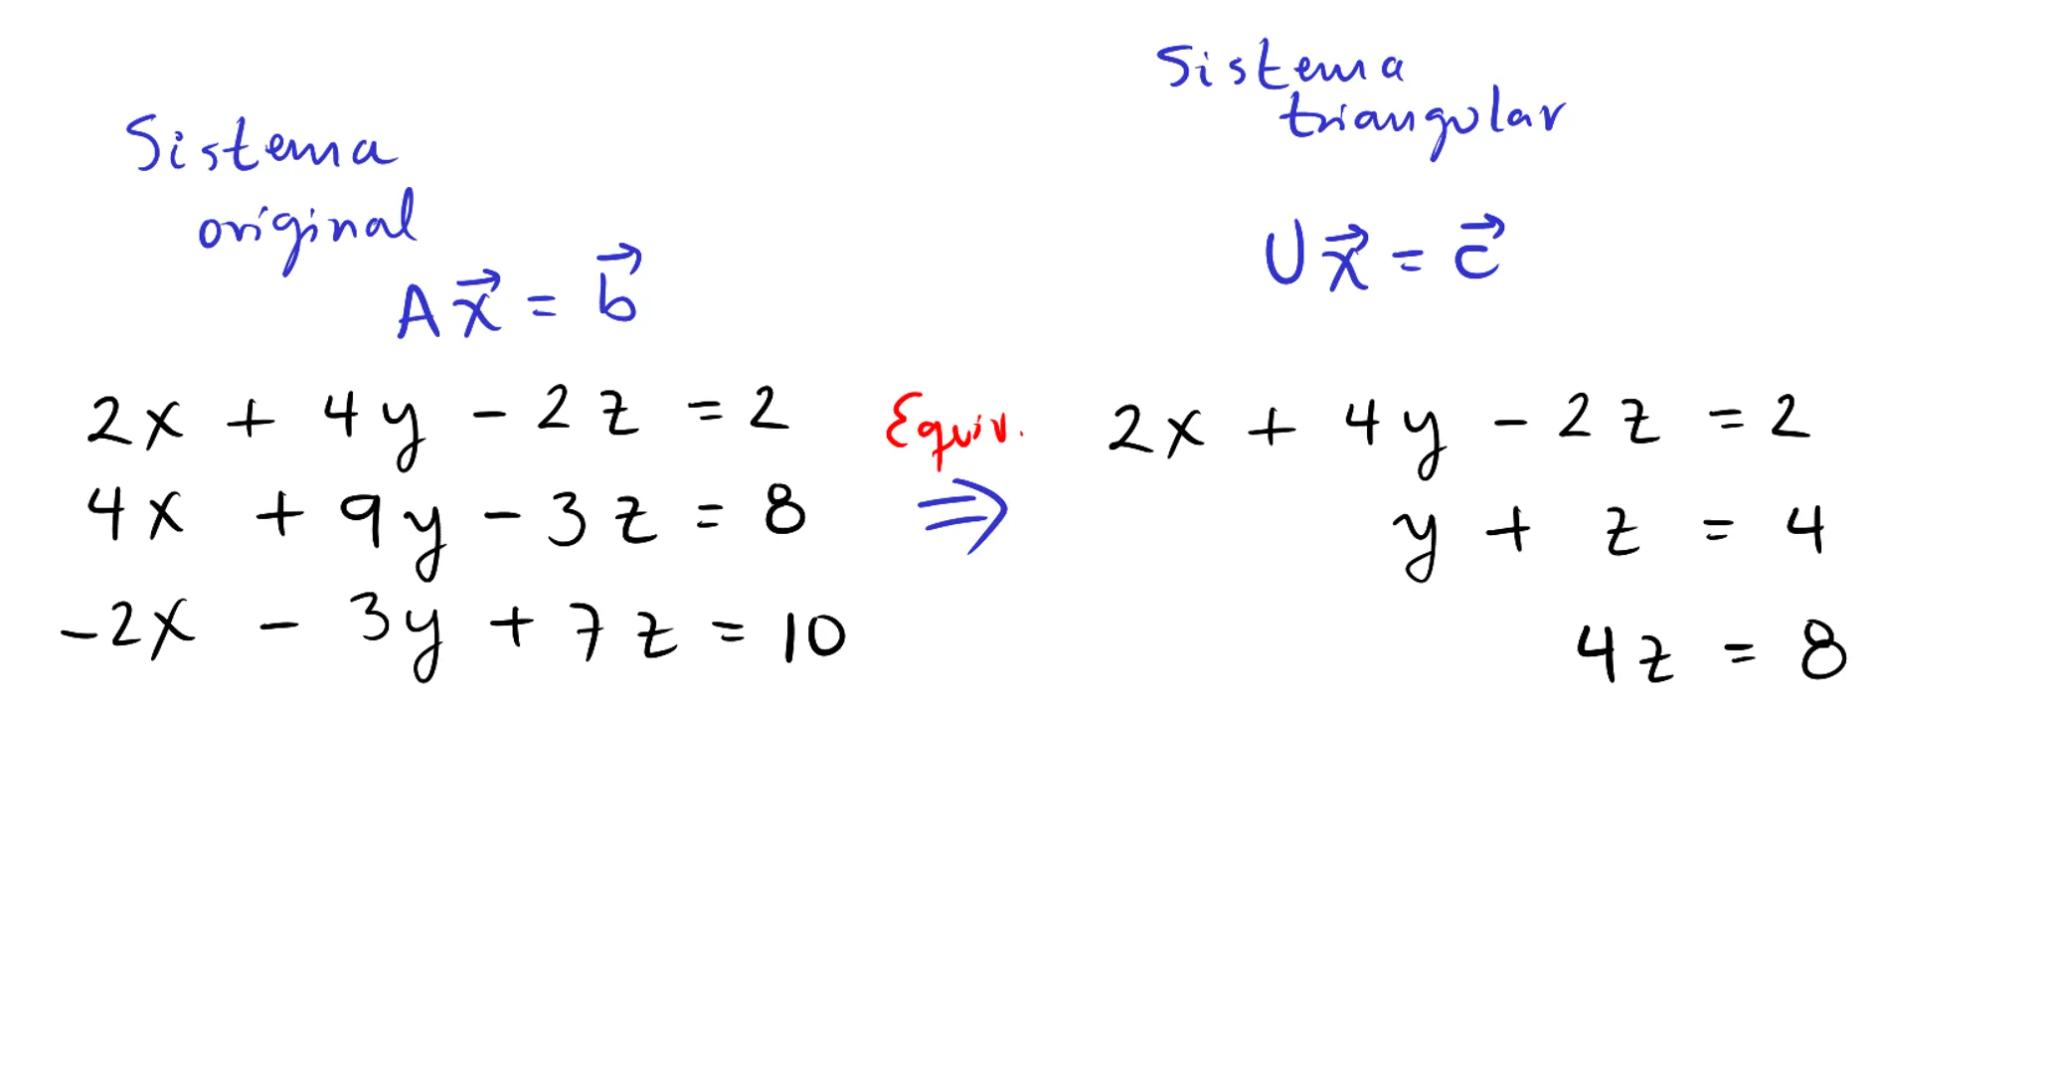 Sistema
original
A x⃗ = b⃗
2x + 4y - 2z = 2
4x + 9y - 3z = 8
-2x - 3y + 7z = 10
Equiv.
⇒
Sistema
triangular
U x⃗ = c⃗
2x + 4y - 2z = 2
y + z = 4
4z = 8